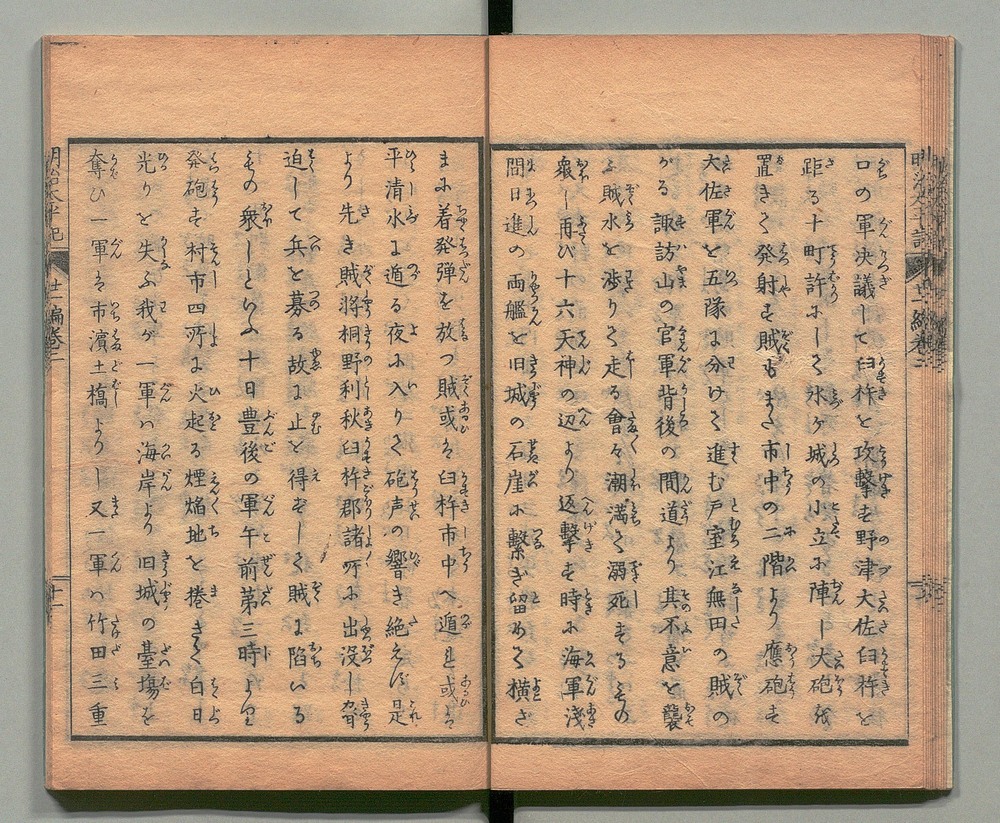 口の軍決議して臼杵を攻撃す野津大佐臼杵を
距る十町許にして氷ケ城の小立に陣し大砲を
置きて発射す賊もまた市中の二階より應砲す
大佐軍を五隊に分けて進む戸室江無田の賊の
諏訪山の官軍背後の間道より其不意を襲
賊水を渉りて走る會々潮満て溺死するもの
衆し再び十六天神の辺より返撃す時に海軍浅
間日進の両艦を旧城の石崖に繋ぎ留めて横さ
まに着発弾を放つ賊或は臼杵市中へ遁れ或は
平清水に遁る夜に入りて砲声の響き絶えず是
より先き賊将桐野利秋臼杵郡諸所に出没し脅
迫して兵を募る故に止を得ずして賊に陥いる
もの衆しといふ十日豊後の軍午前第三時より
発砲す村市四所に火起る煙焔地を捲きて白日
光りを失ふ我が一軍ハ海岸より旧城の臺場を
奪ひ一軍は市濱土橋よりし又一軍ハ竹田三重
明治太平記
廿一編巻二
十一